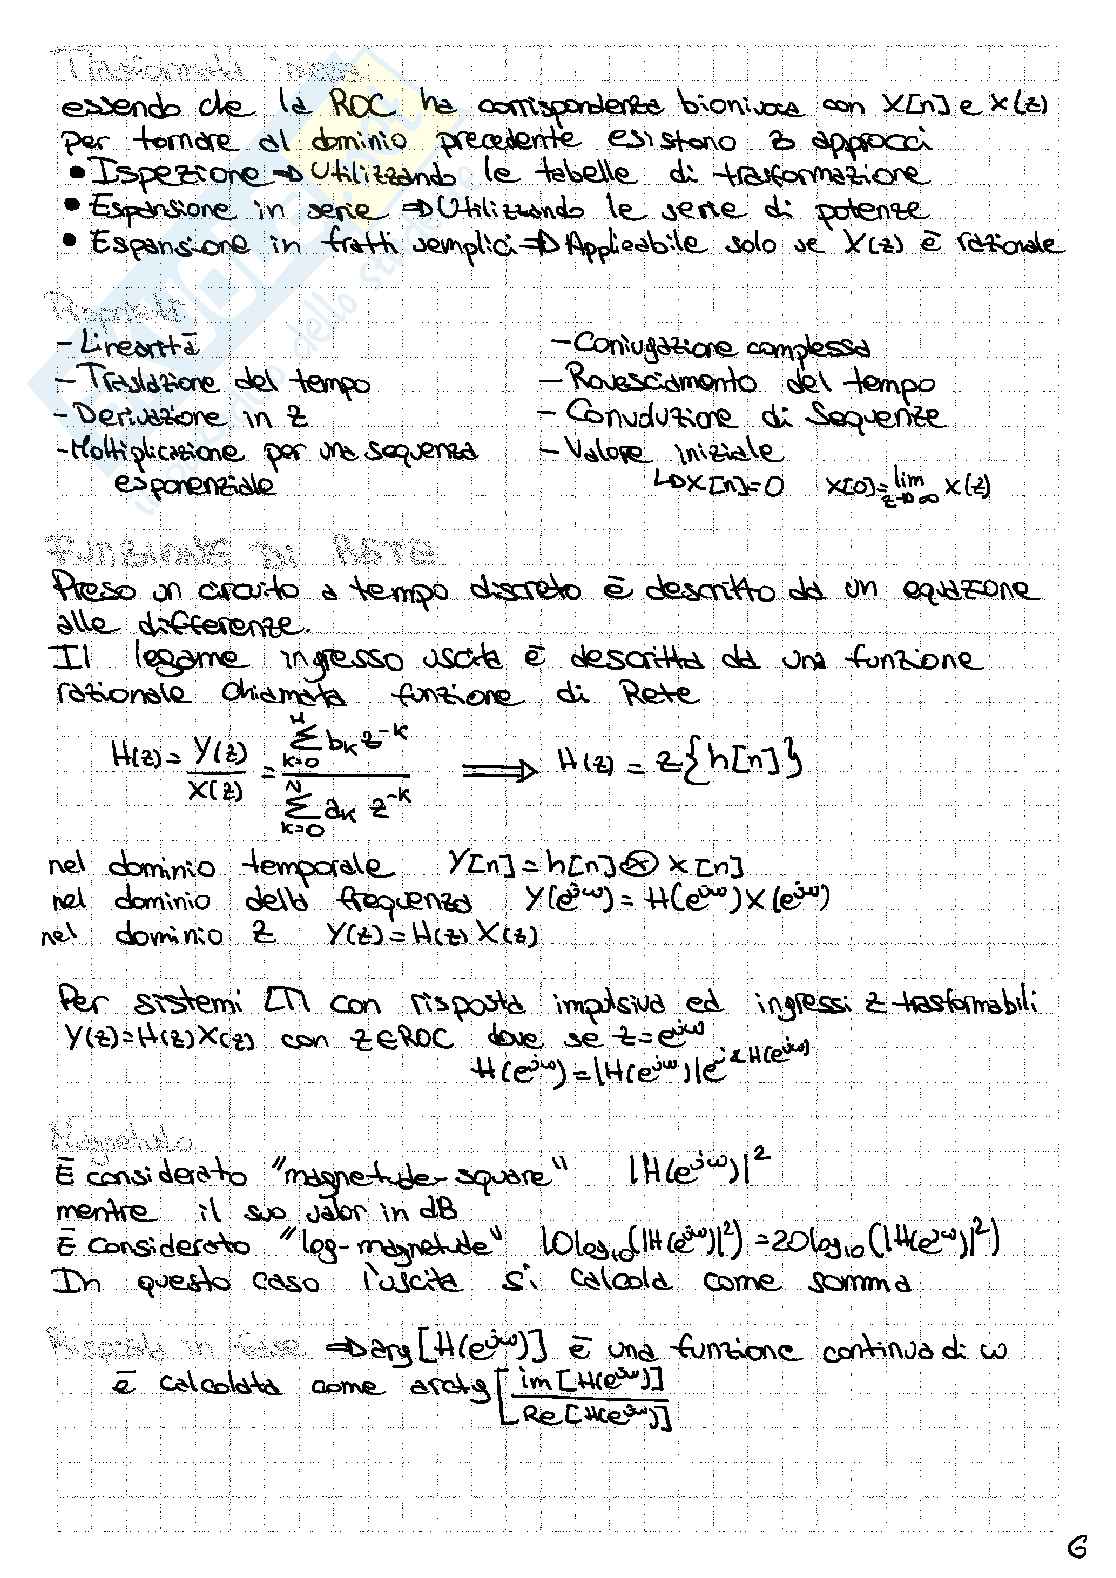 Trasformata Inversa
essendo che la ROC ha corrispondenza bionivoca con X[n] e X(z)
per tornare al dominio precedente esistono 3 approcci
• Ispezione ⇒ Utilizzando le tabelle di trasformazione
• Espansione in serie ⇒ Utilizzando le serie di potenze
• Espansione in fratti semplici ⇒ Applicabile solo se X(z) è razionale
Proprietà
- Linearità
- Traslazione del tempo
- Derivazione in z
- Moltiplicazione per una sequenza
esponenziale
- Coniugazione complessa
- Rovesciamento del tempo
- Convoluzione di Sequenze
- Valore iniziale
↳ X[n]=0 X[0]=lim z→∞ X(z)
FUNZIONE DI RETE
Preso un circuito a tempo discreto è descritto da un equazione
alle differenze.
Il legame ingresso uscita è descritta da una funzione
razionale chiamata funzione di Rete
H(z) = Y(z)/X(z) = ∑_{k=0}^{M} b_k z^{-k} / ∑_{k=0}^{N} a_k z^{-k} ⟹ H(z) = z{h[n]}
nel dominio temporale Y[n] = h[n] ⊛ X[n]
nel dominio della frequenza Y(e^{jω}) = H(e^{jω}) X(e^{jω})
nel dominio z Y(z) = H(z) X(z)
Per sistemi LTI con risposta impulsiva ed ingressi z-trasformabili
Y(z)=H(z)X(z) con z∈ROC dove se z=e^{jω}
H(e^{jω}) = |H(e^{jω})|e^{j∠H(e^{jω})}
È considerato "magnetude-square" |H(e^{jω})|²
mentre il suo valor in dB
È considerato "log-magnetude" 10log₁₀(|H(e^{jω})|²) = 20log₁₀(|H(e^{jω})|²)
In questo caso l'uscita si calcola come somma
Risposta in Fase ⇒ arg[H(e^{jω})] è una funzione continua di ω
è calcolata come arctg[im[H(e^{jω})]/Re[H(e^{jω})]]
6